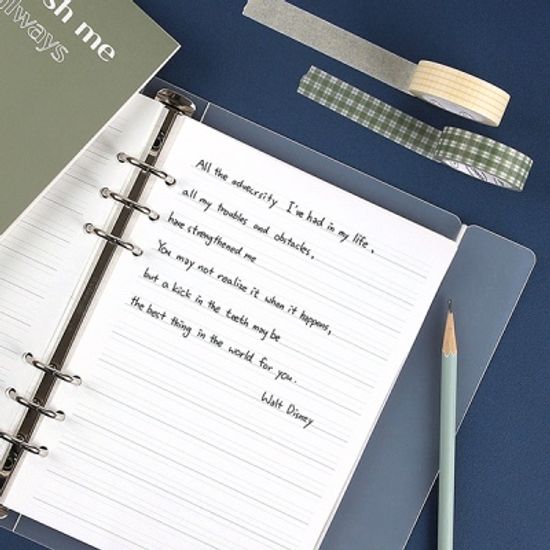 sh me
always
All the adversity I've had in my life,
all my troubles and obstacles,
have strengthened me
You may not realize it when it happens,
but a kick in the teeth may be
the best thing in the world for you.
Walt Disney